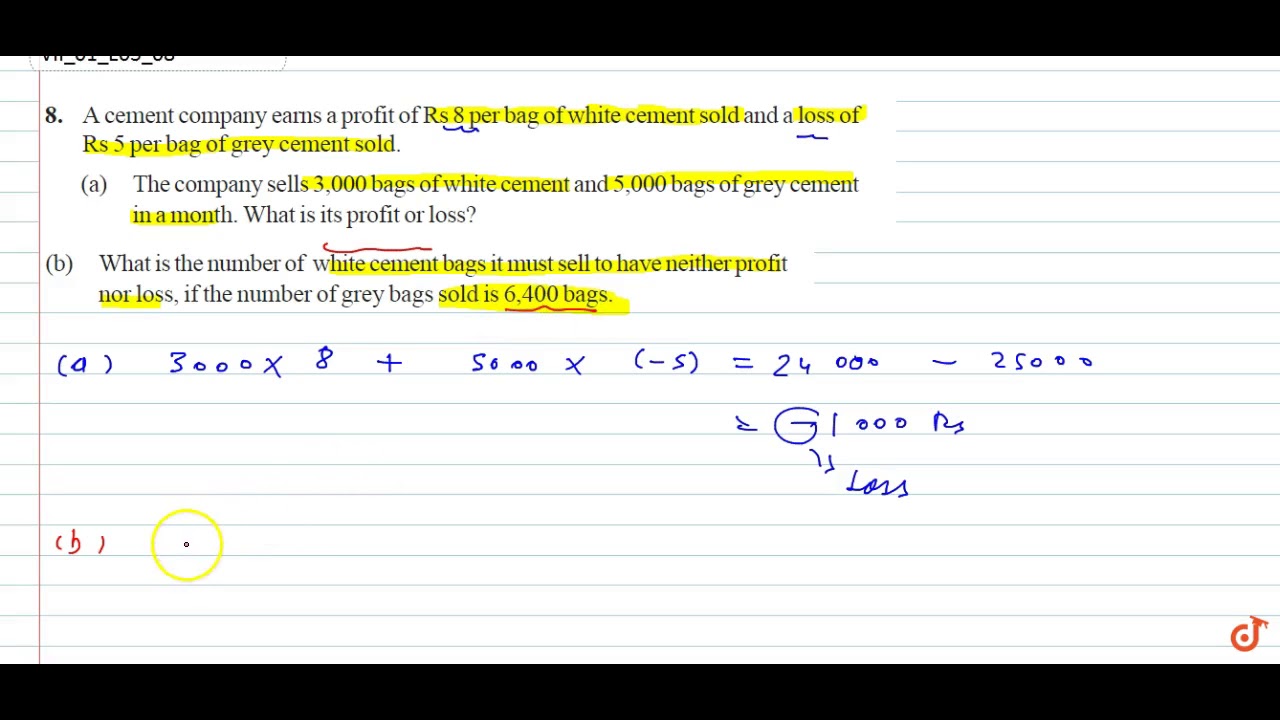 8. A cement company earns a profit of Rs 8 per bag of white cement sold and a loss of
Rs 5 per bag of grey cement sold.
(a) The company sells 3,000 bags of white cement and 5,000 bags of grey cement
in a month. What is its profit or loss?
(b) What is the number of white cement bags it must sell to have neither profit
nor loss, if the number of grey bags sold is 6,400 bags.
(a) 3000 × 8 + 5000 × (-5) = 24 000 - 25000
= -1000 Rs
Loss
(b)